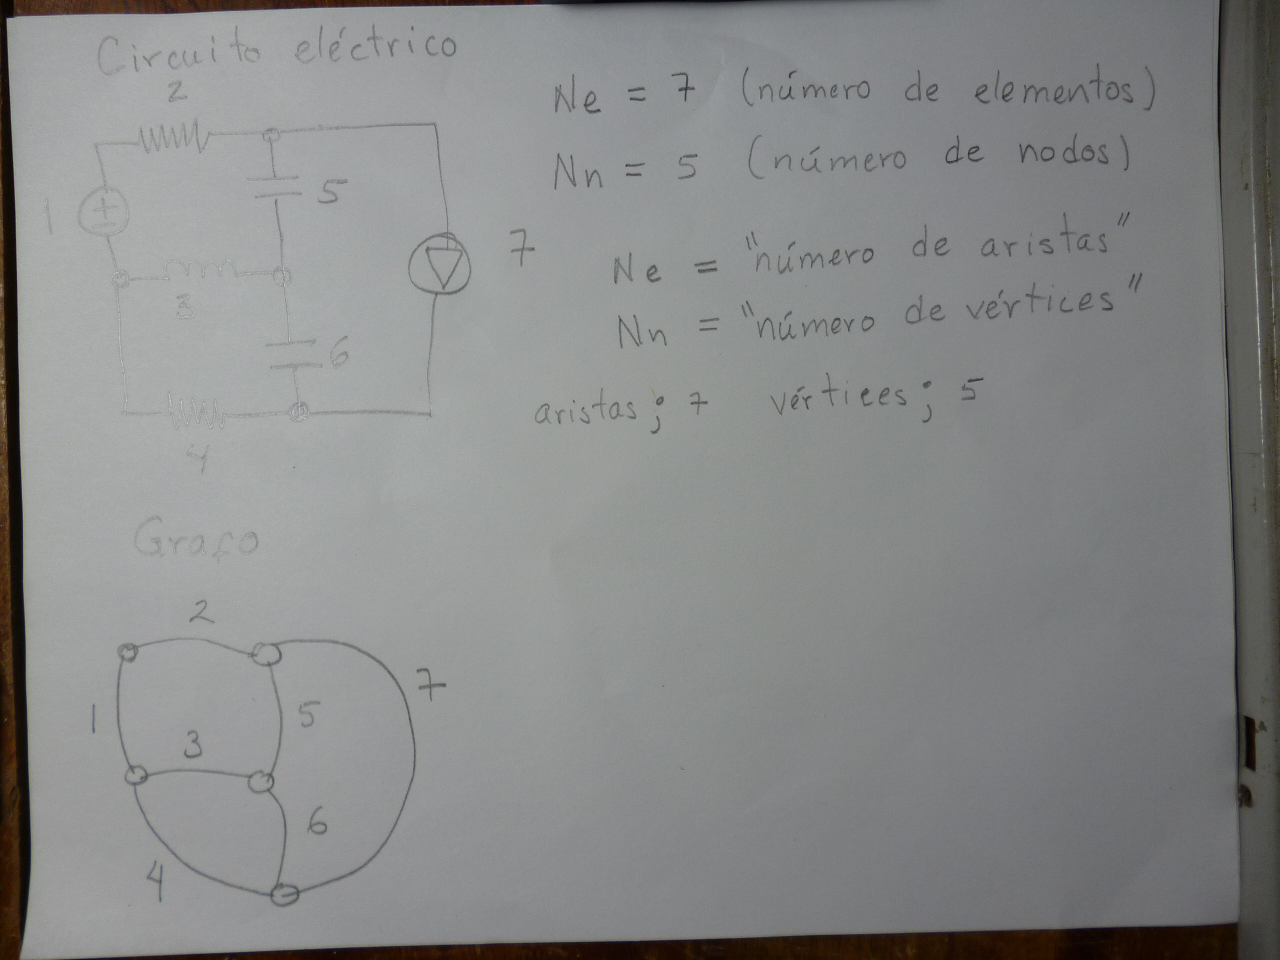 Circuito eléctrico
2
1
5
3
7
6
4
Ne = 7 (número de elementos)
Nn = 5 (número de nodos)
Ne = "número de aristas"
Nn = "número de vértices"
aristas; 7 vértices; 5
Grafo
2
1
5
7
3
6
4